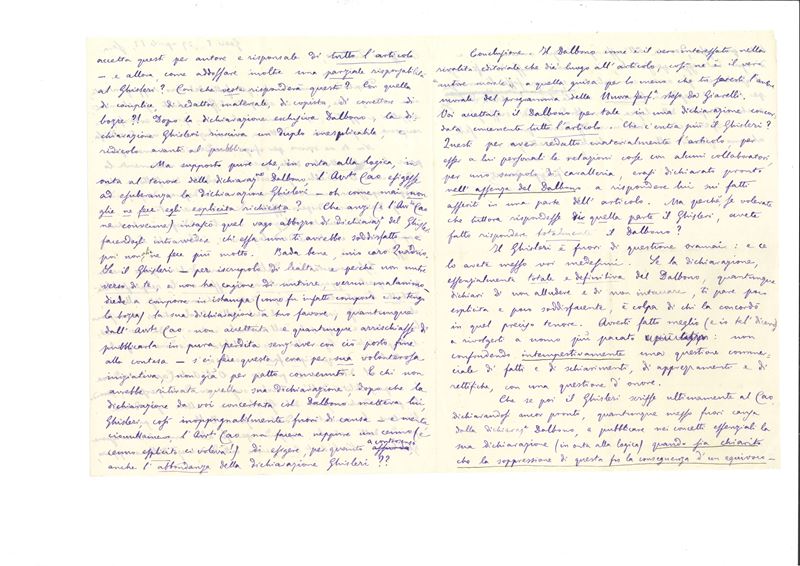 accetta questi per autore e responsale di tutto l'articolo
— e allora come addossare inoltre una parziale risponsabilità
al Ghisleri? Con che veste risponderà questi? Con quella
di complice, di redattor materiale, di copista, di correttor di
bozze?! Dopo la dichiarazione esclusiva Dalbono, la di-
chiarazione Ghisleri riusciva un duplo inesplicabile e
ridicolo avanti al pubblico.
Ma supposto pure che in onta alla logica, in
onta al tenore della dichiaraz.ne Dalbono il Avv.t Cao esigesse
ad esuberanza la dichiarazione Ghisleri — oh come mai non
glie ne fece egli esplicita richiesta? Che anzi (e l'Avv.t Cao
ne conviene)
quel vago abbozzo di dichiaraz. del Ghisleri
facendogli intravvedere ch'essa non ti avrebbe soddisfatto — e
poi non gliene fece più motto. Bada bene, mio caro
Se il Ghisleri — per iscrupolo di lealtà e perchè non nutre
verso di te, e non ha cagione di nutrire, verun malanimo —
diedesi a comporre in istampa (come fu infatto composta e ne tengo
la bozza) la sua dichiarazione a tuo favore, quantunque
dall'Avv.t Cao non accettata e quantunque arrischiasse di
pubblicarla in pura perdita senz'aver con ciò posto fine
alla contesa — s'ei fece questo, era per sua volonterosa
iniziativa, non già per patto convenuto. E chi non
avrebbe ritirata quella sua dichiarazione, dopo che la
dichiarazione da voi concertata col Dalbono metteva lui,
Ghisleri, così inoppugnabilmente fuori di causa — e mentre
l'Avv.t Cao non faceva neppure un cenno (e
cenno esplicito ci voleva!) di esigere, per quanto a contrasenso
anche l'abbondanza della dichiarazione Ghisleri??
Conclusione. Il Dalbono come è il vero interessato nella
rivalità editoriale che die' luogo all'articolo, così ne è il vero
autore morale, a quella guisa per lo meno che tu faresti l'autore
morale del programma della Nuova
steso da Giarelli.
Voi accettate il Dalbono per tale in una dichiarazione concor-
data concernente tutto l'articolo. Che c'entra più il Ghisleri?
Questi per aver redatto materialmente l'articolo, per
esser a lui personali le relazioni corse con alcuni collaboratori,
per uno scrupolo di cavalleria, erasi dichiarato pronto
nell'assenza del Dalbono a rispondere lui sui fatti
asseriti in una parte dell'articolo. Ma perchè, se volevate
che tuttora rispondesse di quella parte il Ghisleri, avete
fatto rispondere totalmente il Dalbono?
Il Ghisleri è fuori di questione oramai: e ce
lo avete messo voi medesimi. Se la dichiarazione,
essenzialmente totale e definitiva del Dalbono, quantunque
dichiari di non alludere e di non intaccare, ti pare poco
esplicita e poco soddisfacente, è colpa di chi la concordò
in quel preciso tenore. Avresti fatto meglio (e
a rivolgerti a uomo più pacato
: non
confondendo intempestivamente una questione comme-
ciale di fatti e di schiarimenti, di apprezzamento e di
rettifiche, con una questione d'onore.
Che se poi il Ghisleri scrisse ultimamente al Cao
dichiarandosi ancor pronto, quantunque messo fuori causa
dalla dichiaraz. Dalbono, a pubblicare nei concetti essenziali la
sua dichiarazione (in onta alla logica) quando sia chiarito
che la soppressione di questa fu la conseguenza d'un equivoco —